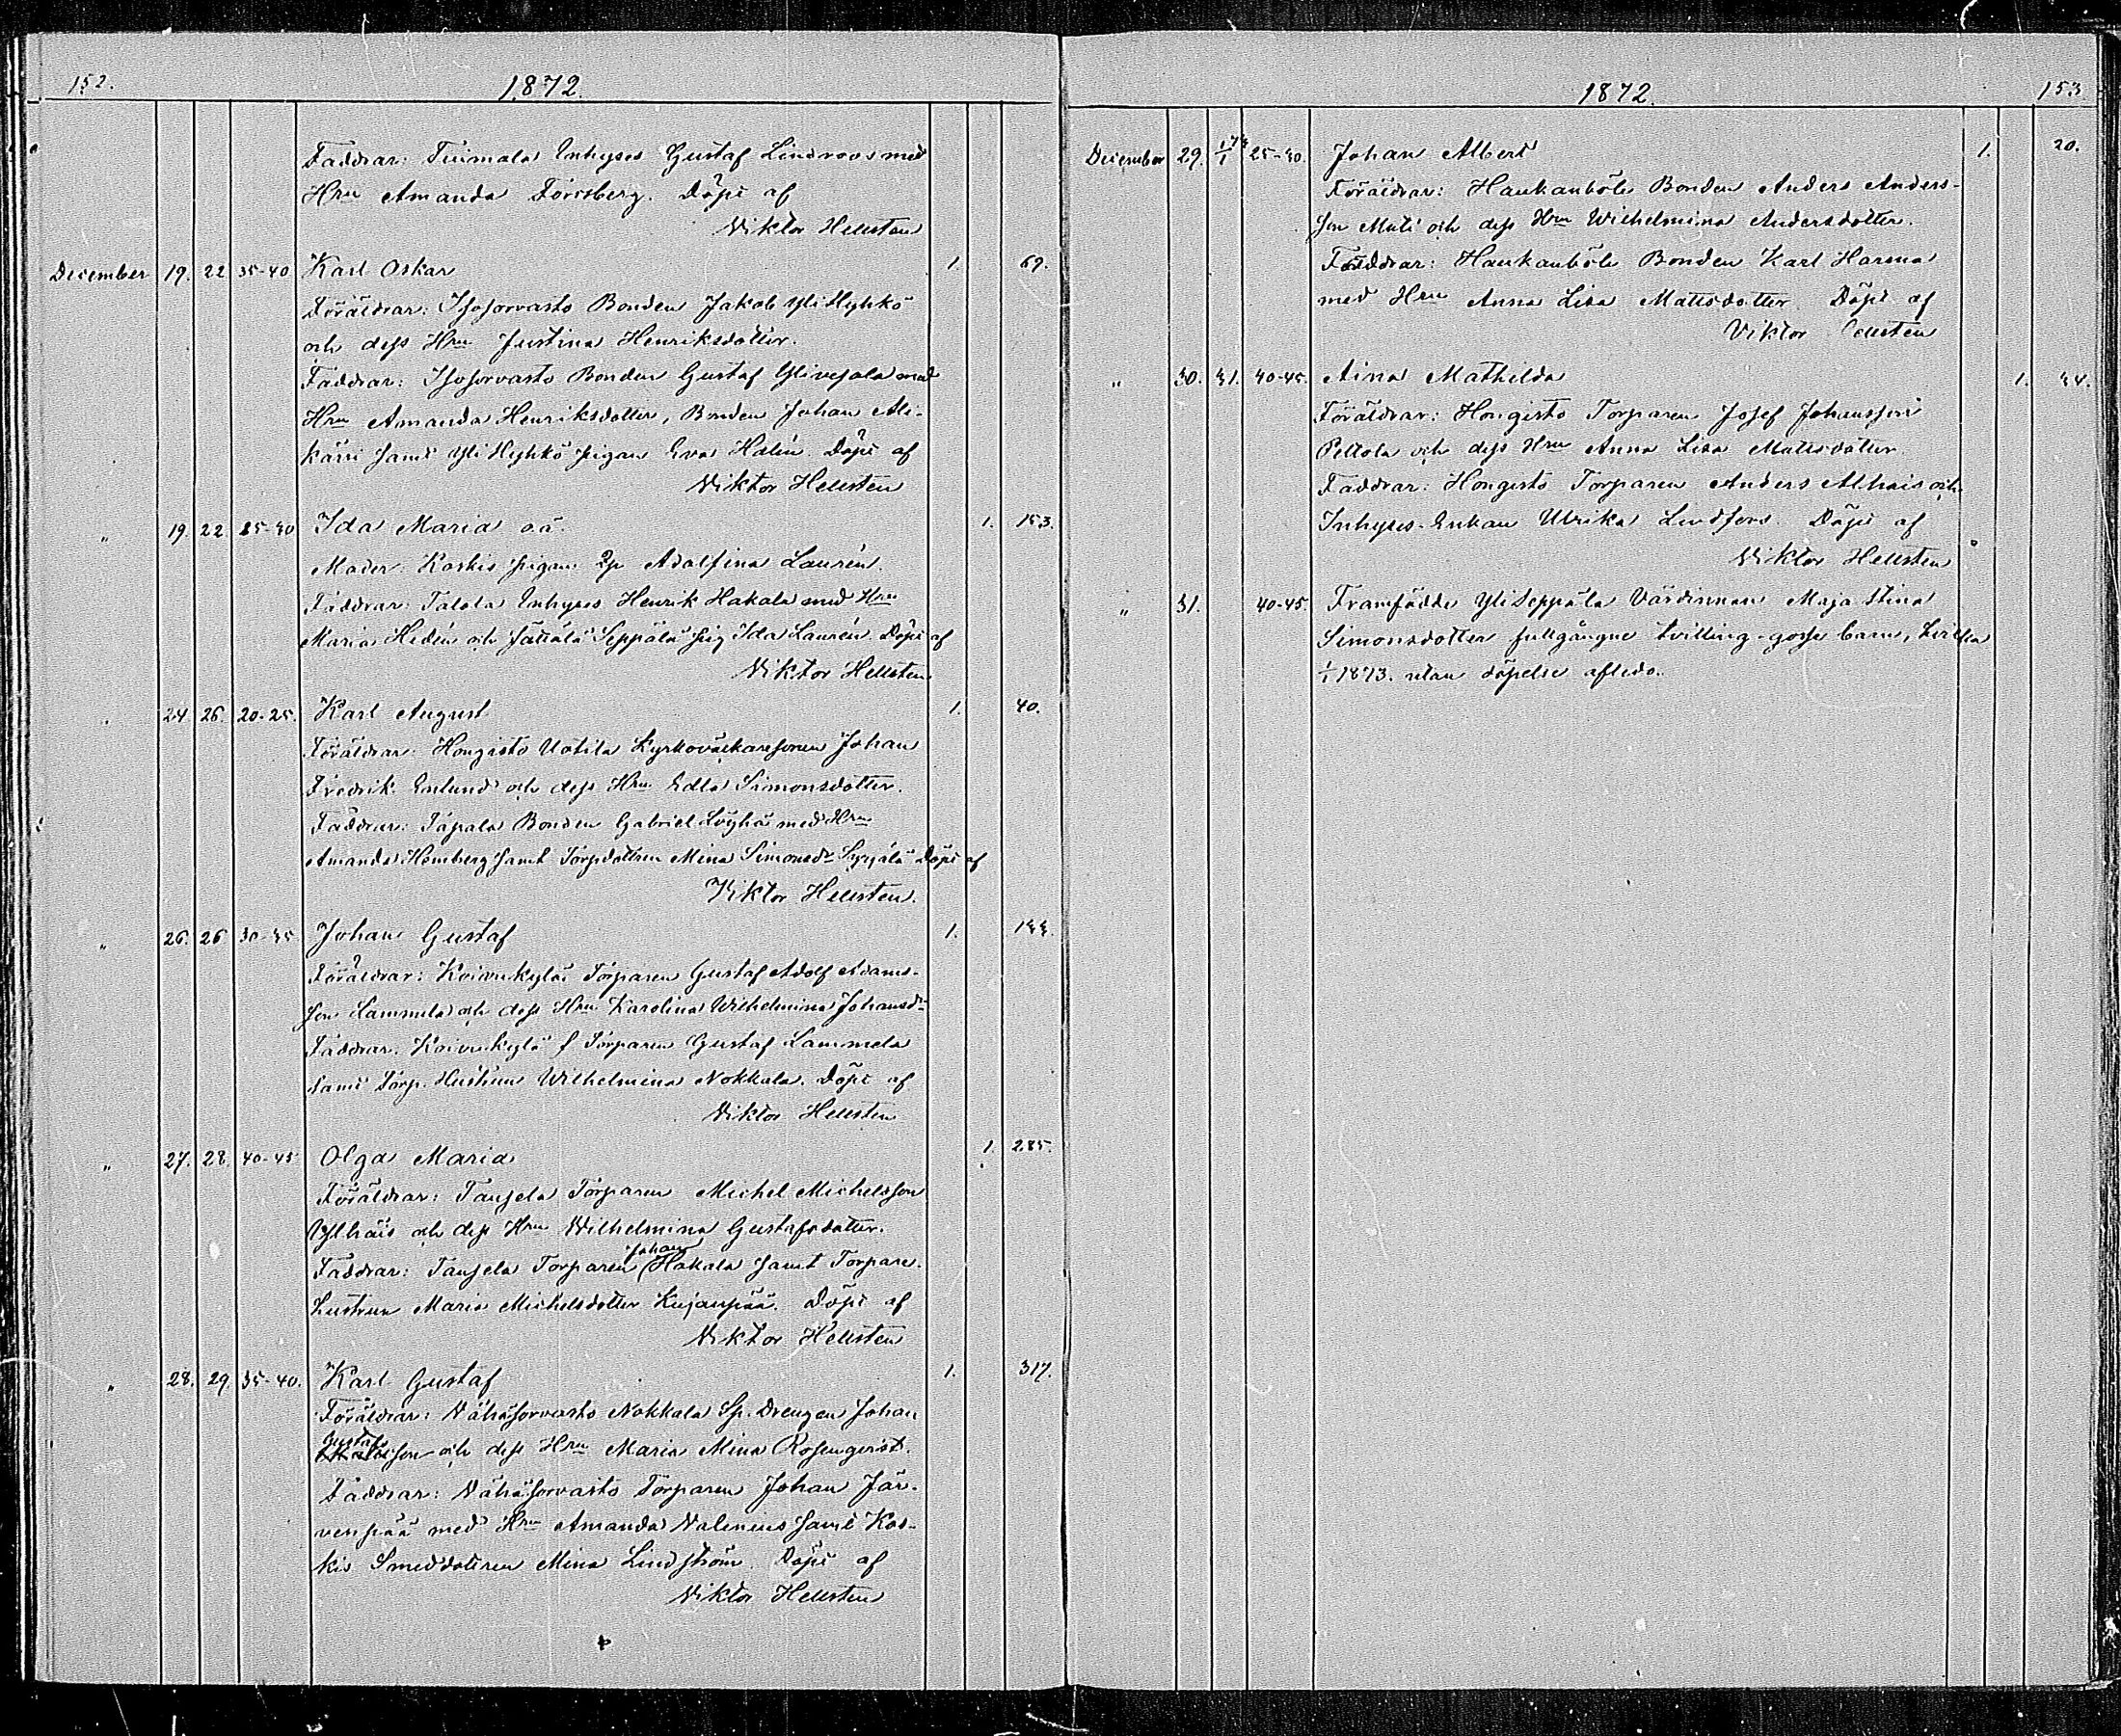 152.
1872.
Faddrar: Tuimala Inhyses Gustaf Lindroos med
Hru Amanda Forssberg. Döpt af
Viktor Hellsten
December 19. 22 35-40 Karl Oskar 1. 69.
Föräldrar: Isosorvasto Bonden Jakob Yli Hyhkö
och dess Hru Justina Henriksdotter.
Faddrar: Isosorvasto Bonden Gustaf Ylivejola med
Hru Amanda Henriksdotter, Bonden Johan Ali-
kärri samt Yli Hyhkö pigan Eva Halén. Döpt af
Viktor Hellsten
" 19. 22. 25-30 Ida Maria oä. 1. 153.
Moder: Koskis pigan Adolfina Laurén.
Faddrar: Talola Inhyses Henrik Hakala med Hru
Maria Hedén och Seppälä pig Ida Laurén. Döpt af
Viktor Hellsten
" 24 26. 20-25. Karl August 1. 40.
Föräldrar: Hongisto Uotila Kyrkoväktaresonen Johan
Fredrik Enlund och dess Hru Edla Simonsdotter.
Faddrar: Tapala Bonden Gabriel Löyhä med Hru
Amanda Hemberg samt Torpdottren Mina Simonsdr Seppälä Döpt af
Viktor Hellsten.
" 26. 26 30-35. Johan Gustaf 1. 144.
Föräldrar: Koivukylä Torparen Gustaf Adolf Adams-
son Lammela och dess Hru Karolina Wilhelmina Johansdr
Faddrar: Koivukylä f Torparen Gustaf Lammela
samt Torp. Hustrun Wilhelmina Nokkala. Döpt af
Viktor Hellsten
" 27. 28. 40-45 Olga Maria 1. 285.
Föräldrar: Taujela Torparen Michel Michelsson
Ylhäis och dess Hru Wilhelmina Gustafsdotter.
Johan
Faddrar: Taujela Torparen Hakala samt Torpare-
hustrun Maria Michelsdotter Kujanpää. Döpt af
Viktor Hellsten
" 28. 29. 35-40. Karl Gustaf 1. 317.
Föräldrar: Nähäsorvasto Nokkala Sp. Drengen Johan
Gustaf
son och dess Hru Maria Mina Rosenqvist.
Faddrar: Nähäsorvasto Torparen Johan Jär-
venpää med Hru Amanda Valenius samt Kos-
kis Smeddottren Mina Lindström. Döpt af
Viktor Hellsten
1872.
153
December 29. 1/1 73 25-30. Johan Albert 1. 20.
Föräldrar: Haukanböle Bonden Anders Anders-
son Muti och dess Hru Wilhelmina Andersdotter.
Faddrar: Haukanböle Bonden Karl Harma
med Hru Anna Lisa Mattsdotter. Döpt af
Viktor Hellsten
" 30. 31. 40-45. Aina Mathilda 1. 34.
Föräldrar: Hongisto Torparen Josef Johansson
Peltola och dess Hru Anna Lisa Mattsdotter
Faddrar: Hongisto Torparen Anders Alhais och
Inhyses-Enkan Ulrika Lindfors. Döpt af
Viktor Hellsten
" 31. 40-45. Framfödde Yli Seppälä Värdinnan Maja Stina
Simonsdotter fullgångne tvilling-gosse barn, hvilka
1/1 1873. utan döpelse afledo.